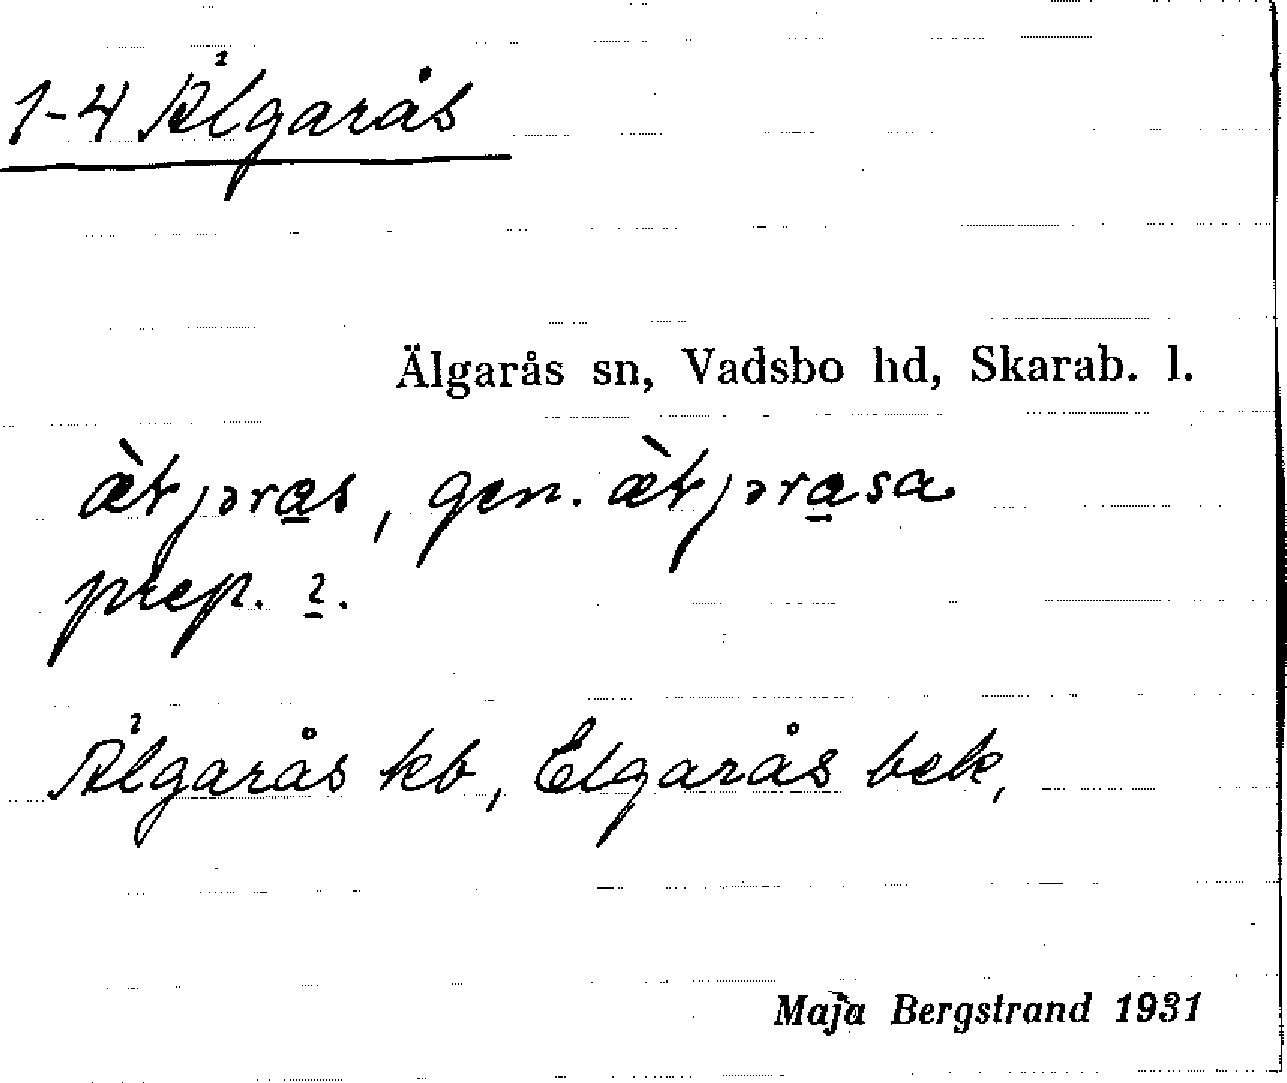 1-4 Älgarås
Älgarås sn, Vadsbo hd, Skarab. l.
prep. ?.
Älgarås kb, Elgarås bek,
Maja Bergstrand 1931